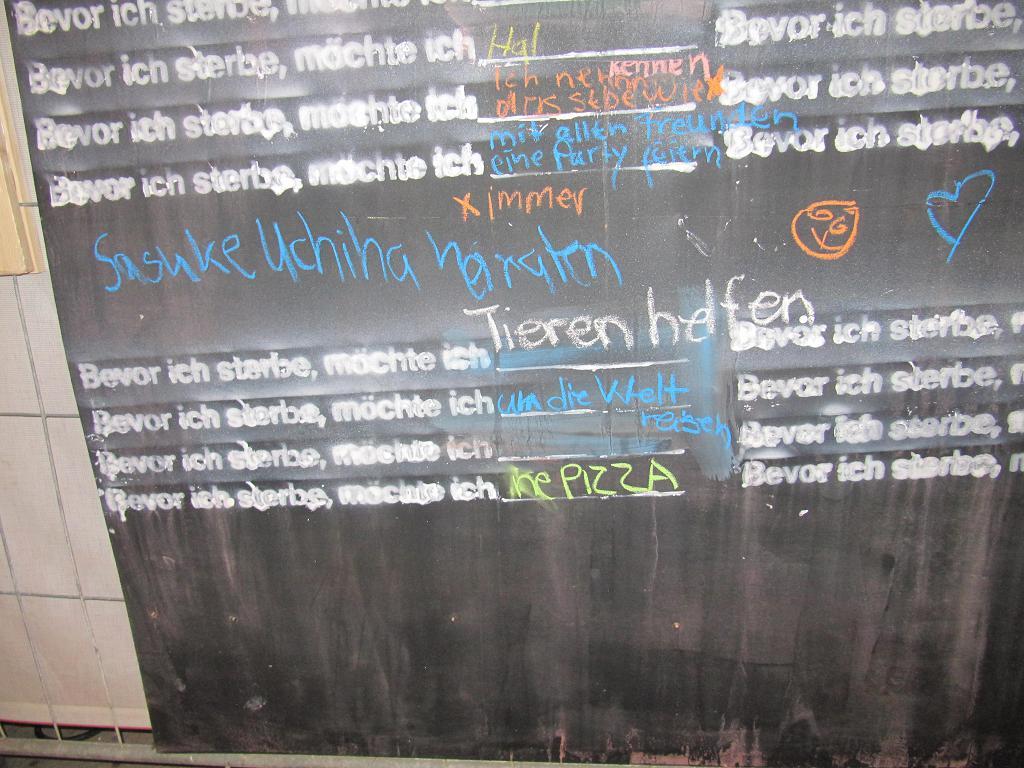 Bevor ich sterbe, möchte ich
Bevor ich sterbe,
Bevor ich sterbe, möchte ich Hal
Bevor ich sterbe,
Bevor ich sterbe, möchte ich
kennen
Bevor ich sterbe,
Bevor ich sterbe, möchte ich mit allen Freunden
eine Party feiern
x immer
Sasuke Uchiha
Tieren helfen
Bevor ich sterbe, möchte ich
Bevor ich sterbe,
Bevor ich sterbe, möchte ich um die Welt
reisen
Bevor ich sterbe,
Bevor ich sterbe, möchte ich
Bevor ich sterbe,
Bevor ich sterbe, möchte ich ne PIZZA
Bevor ich sterbe,